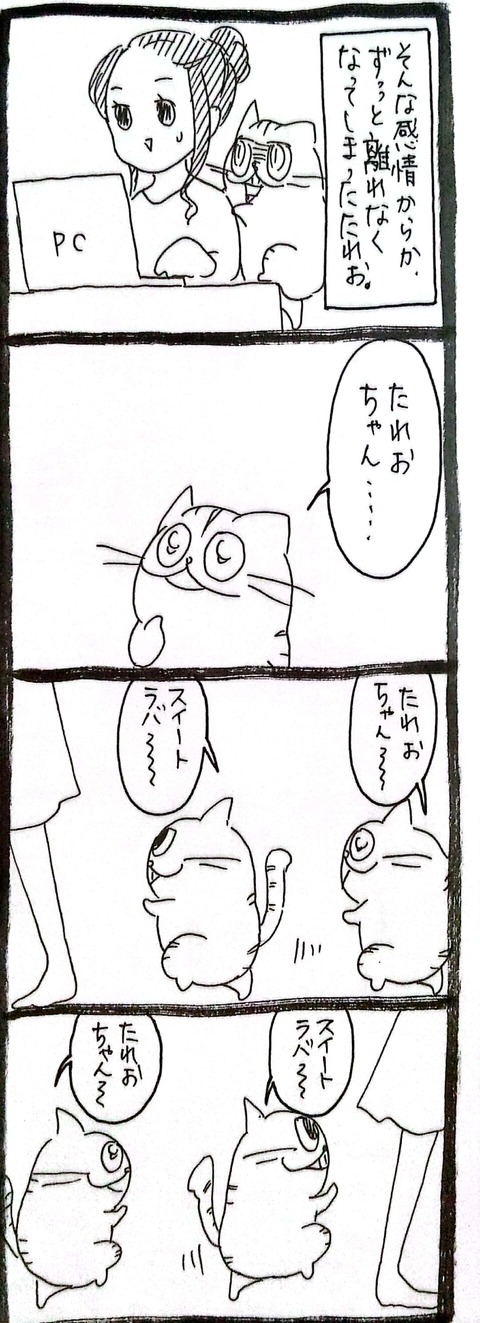 そんな感情からか、
ずぅっと離れなく
なってしまったたれお。
PC
たれお
ちゃん……
たれお
ちゃん〜〜
スイート
ラバ〜〜〜
スイート
ラバ〜〜
たれお
ちゃん〜